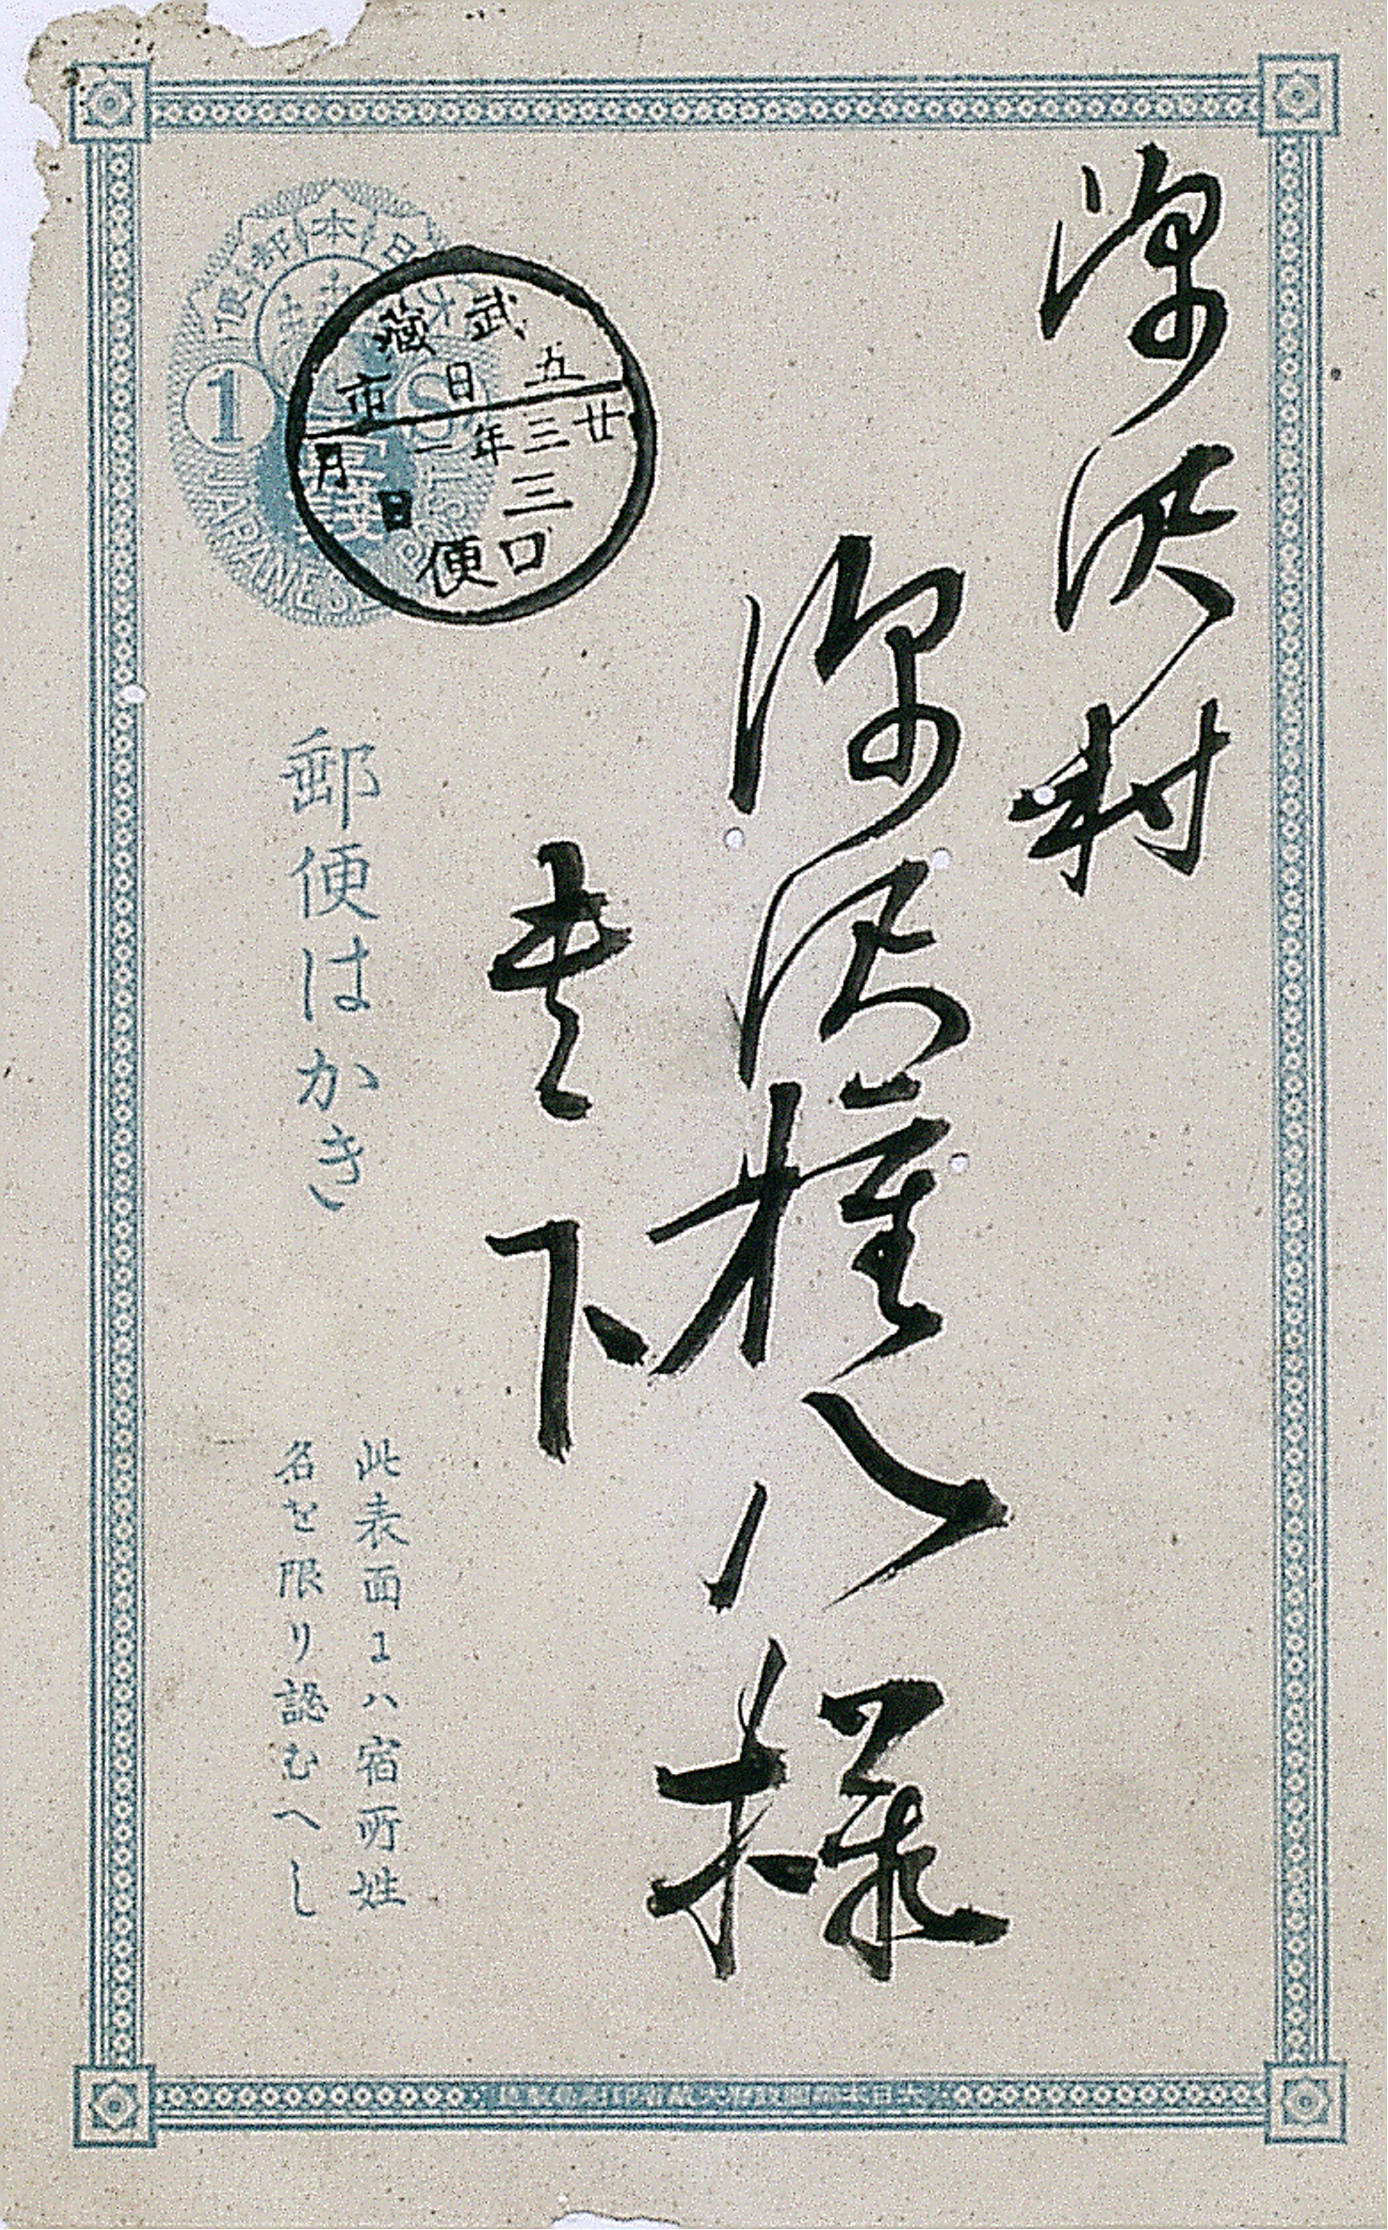 深沢村
深沢権八様
貴下
武蔵
五日市
廿三年一月
三日
口便
日本郵便
1
S
JAPANESE
郵便はかき
此表面にハ宿所姓
名を限り認むへし